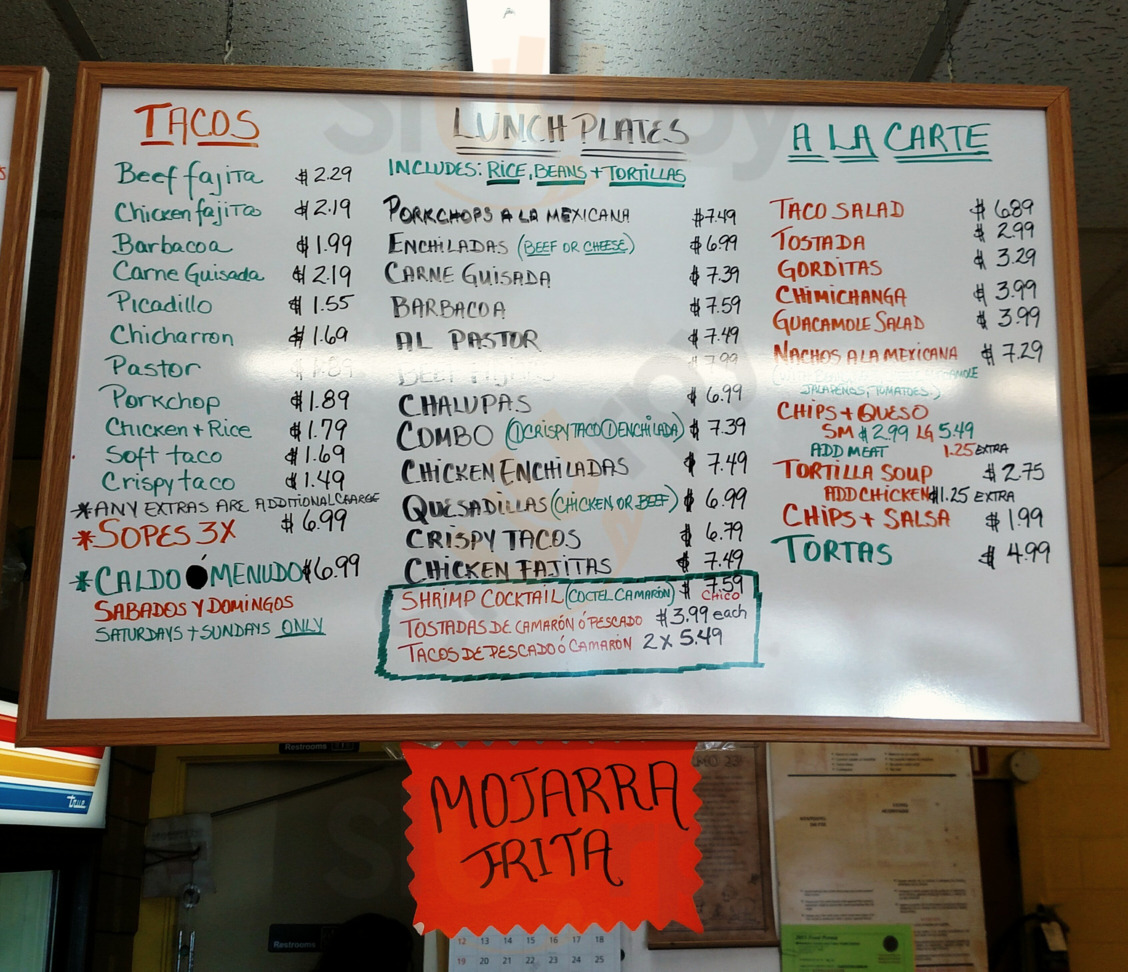 TACOS
Beef fajita $2.29
Chicken fajitas $2.19
Barbacoa $1.99
Carne Guisada $2.19
Picadillo $1.55
Chicharron $1.69
Pastor $1.89
Porkchop $1.89
Chicken + Rice $1.79
Soft taco $1.69
Crispy taco $1.49
*ANY EXTRAS ARE ADDITIONAL CHARGE
*SOPES 3X $6.99
*CALDO Ó MENUDO $6.99
SABADOS Y DOMINGOS
SATURDAYS + SUNDAYS ONLY
LUNCH PLATES
INCLUDES: RICE, BEANS + TORTILLAS
PORKCHOPS A LA MEXICANA $7.49
ENCHILADAS (BEEF OR CHEESE) $6.99
CARNE GUISADA $7.39
BARBACOA $7.59
AL PASTOR $7.49
BEEF FAJITAS $7.99
CHALUPAS $6.99
COMBO (1 CRISPY TACO 1 ENCHILADA) $7.39
CHICKEN ENCHILADAS $7.49
QUESADILLAS (CHICKEN OR BEEF) $6.99
CRISPY TACOS $6.79
CHICKEN FAJITAS $7.49
SHRIMP COCKTAIL (COCTEL CAMARÓN) $7.59
CHICO
TOSTADAS DE CAMARÓN Ó PESCADO $3.99 each
TACOS DE PESCADO Ó CAMARÓN 2 X 5.49
A LA CARTE
TACO SALAD $6.89
TOSTADA $2.99
GORDITAS $3.29
CHIMICHANGA $3.99
GUACAMOLE SALAD $3.99
NACHOS A LA MEXICANA $7.29
JALAPEÑOS, TOMATOES.)
CHIPS + QUESO
SM $2.99 LG 5.49
ADD MEAT 1.25 EXTRA
TORTILLA SOUP $2.75
ADD CHICKEN $1.25 EXTRA
CHIPS + SALSA $1.99
TORTAS $4.99
MOJARRA
FRITA
true
Restrooms
Restrooms
12 13 14 15 16 17 18
19 20 21 22 23 24 25